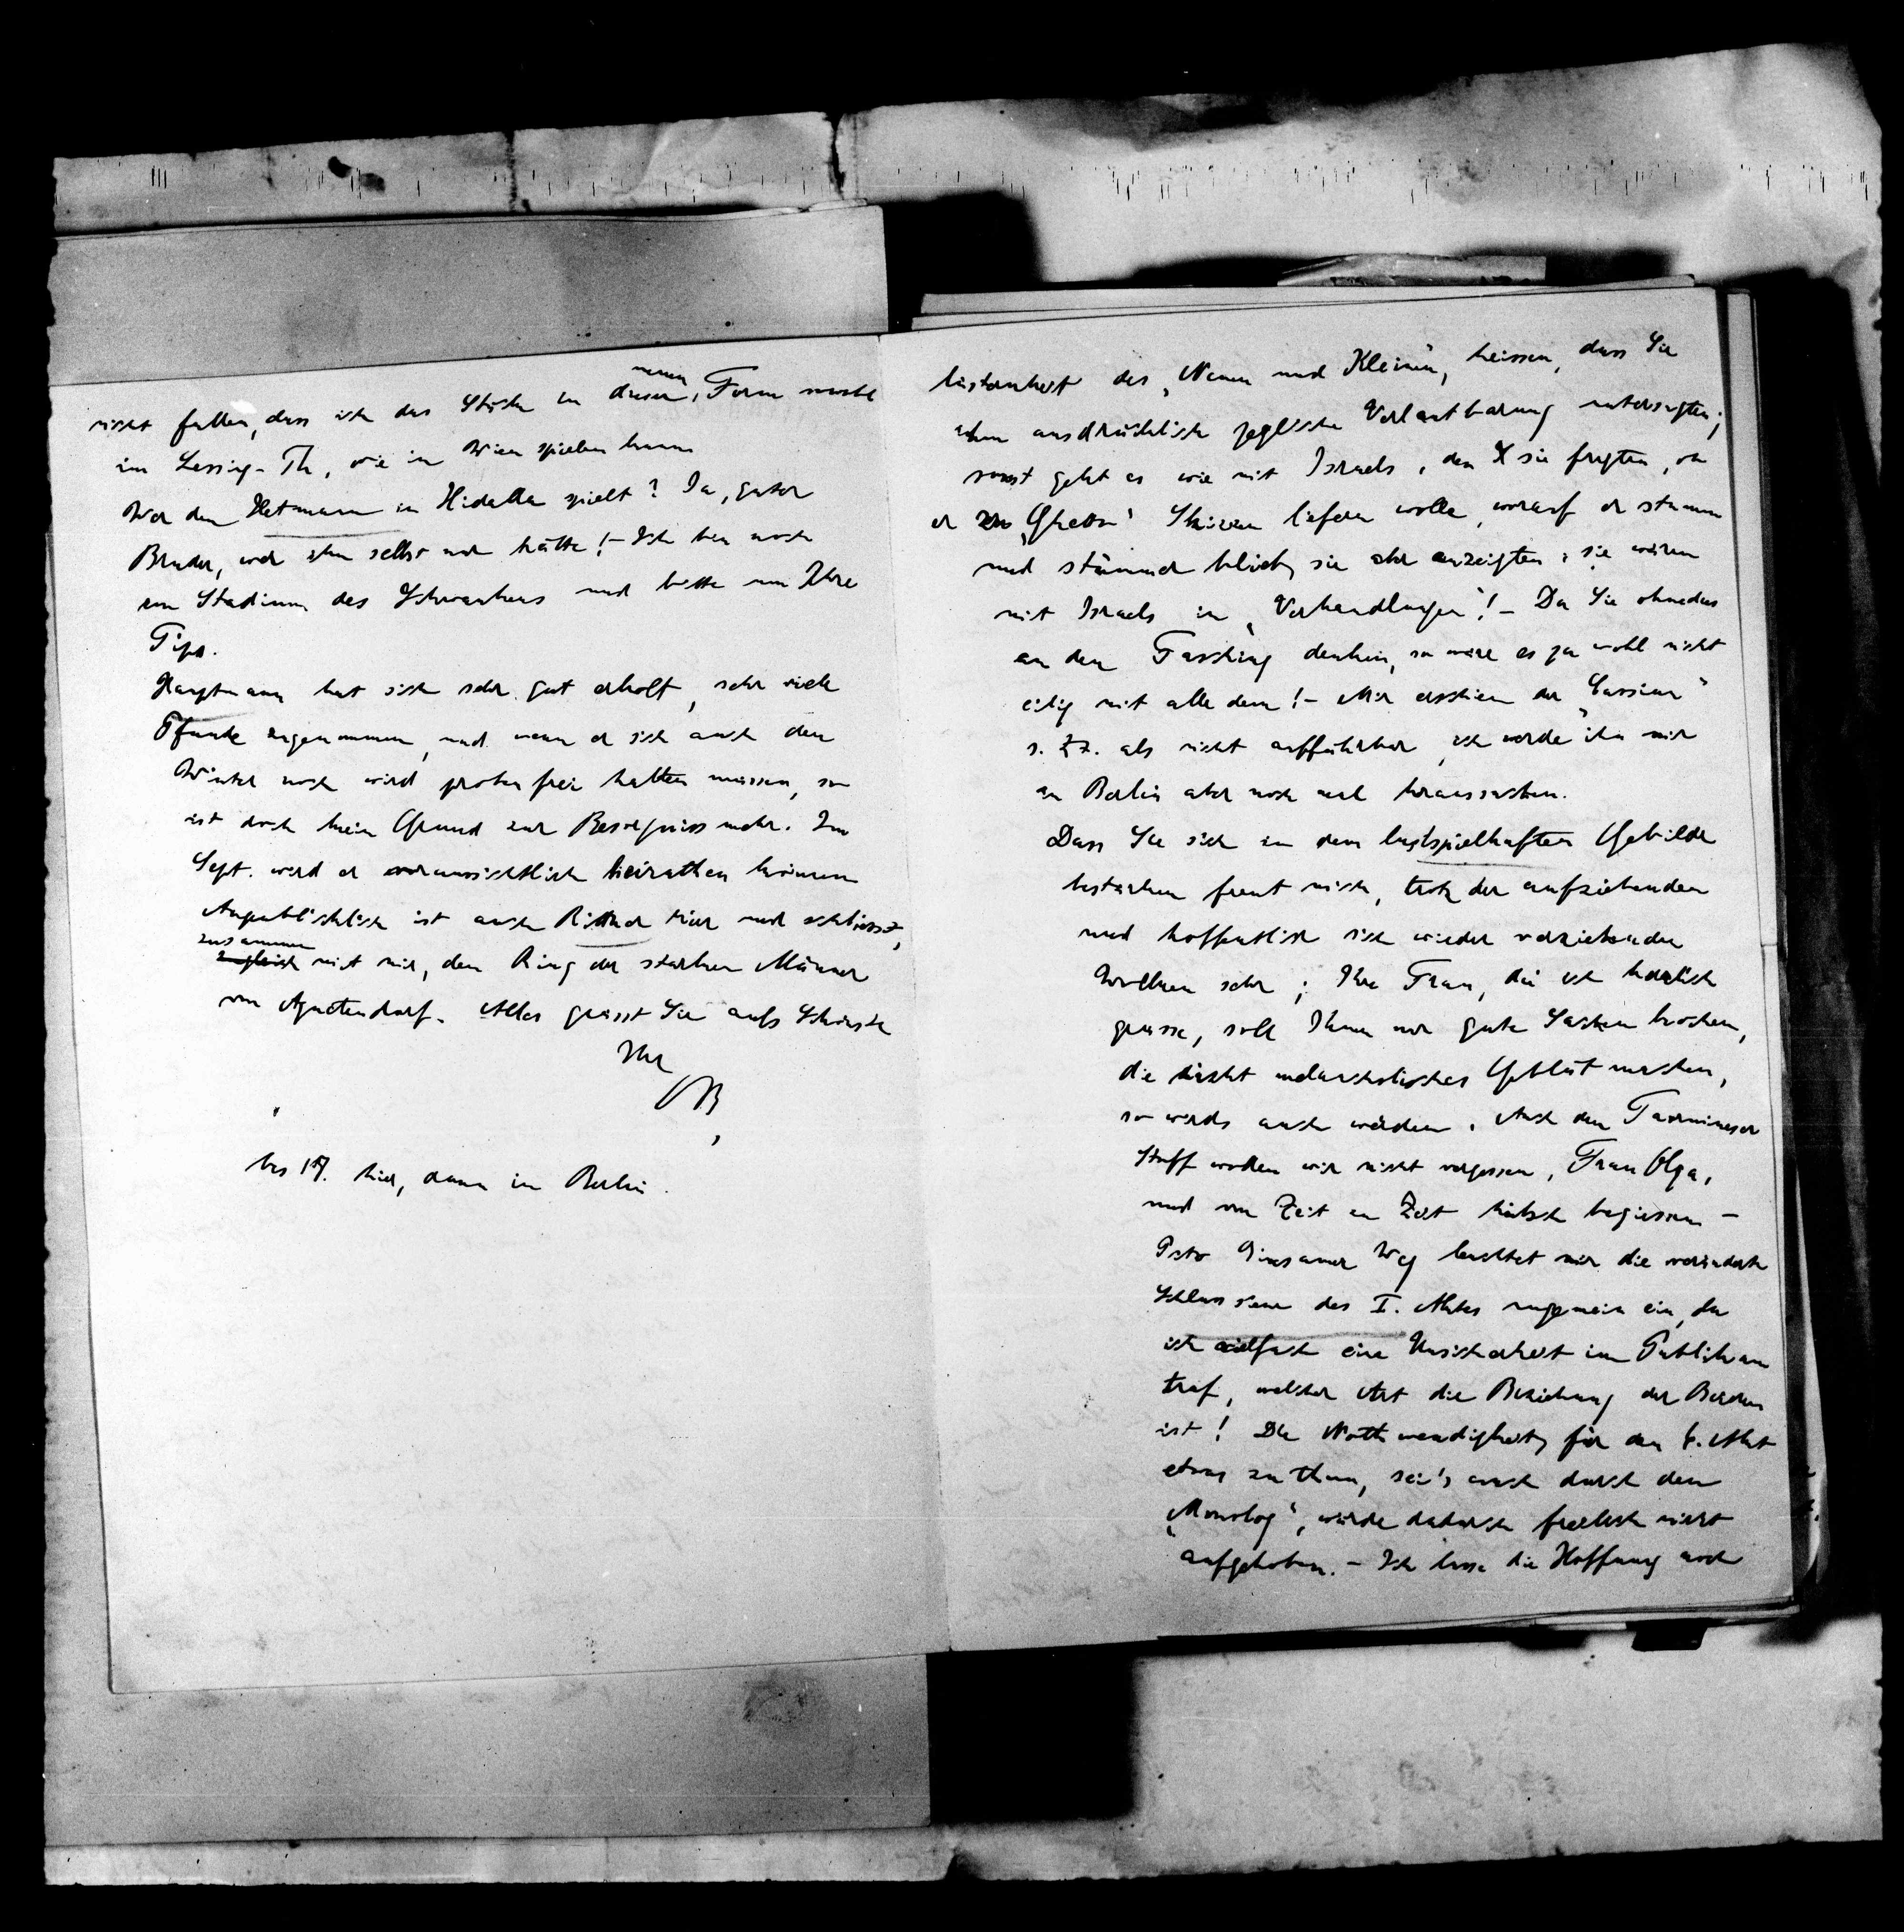 nicht fallen, dass ich das Stück in dieser neuen Form sowohl
im Lessing-Th, wie in Wien spielen kann
Wer den Hetmann in Hidalla spielt? Ja, guter
Bruder, wer ihn selbst nur hätte! – Ich bin noch
im Stadium des Schwankens und bitte um Ihre
Tips.
Hauptmann hat sich sehr gut erholt, sehr viele
Pfunde zugenommen, und wenn er sich auch den
Winter noch wird probenfrei halten müssen, so
ist doch kein Grund zur Besorgniss mehr. Im
Sept. wird er voraussichtlich heirathen können
Augenblicklich ist auch Rittner hier und schliesst,
zusammen
zugleich mit mir, den Ring der starken Männer
von Agnetendorf. Alles grüsst Sie aufs Schönste
Ihr
OB
bis 17. hier, dann in Berlin.
des „Neuen und Kleinen", heissen, dass Sie
ihm ausdrücklich jegliche Verlautbarung untersagten;
sonst geht es wie mit Israels, den sie fragten, ob
er zu „Ghetto" Skizzen liefern wolle, worauf er stumm
und stümmer blieb, sie aber anzeigten: sie wären
mit Israels in „Verhandlungen"! – Da Sie ohnedies
an den Fasching denken, so wäre es ja wohl nicht
eilig mit alle dem! – Mir erschien der „Cassian"
s. Zt. als nicht aufführbar, ich werde ihn mir
in Berlin aber noch mal heraussuchen.
Dass Sie sich zu dem lustspielhaften Gebilde
bestärken freut mich, trotz der aufziehenden
und hoffentlich sich wieder verziehenden
Wolken sehr; Ihre Frau, die ich herzlich
grüsse, soll Ihnen nur gute Sachen kochen,
die nicht melancholisches Geblüt machen,
so wirds auch werden. Auch den Taormineser
Stoff wollen wir nicht vergessen, Frau Olga,
und von Zeit zu Zeit hübsch begiessen –
Pcto Einsamer Weg leuchtet mir die veränderte
Schlussscene des I. Aktes ungemein ein, da
ich vielfach eine Unsicherheit im Publikum
traf, welcher Art die Beziehung der Beiden
ist! Die Nothwendigkeit, für den 4. Akt
etwas zu thun, sei's auch durch den
„Monolog", würde dadurch freilich nicht
aufgehoben. – Ich lasse die Hoffnung noch